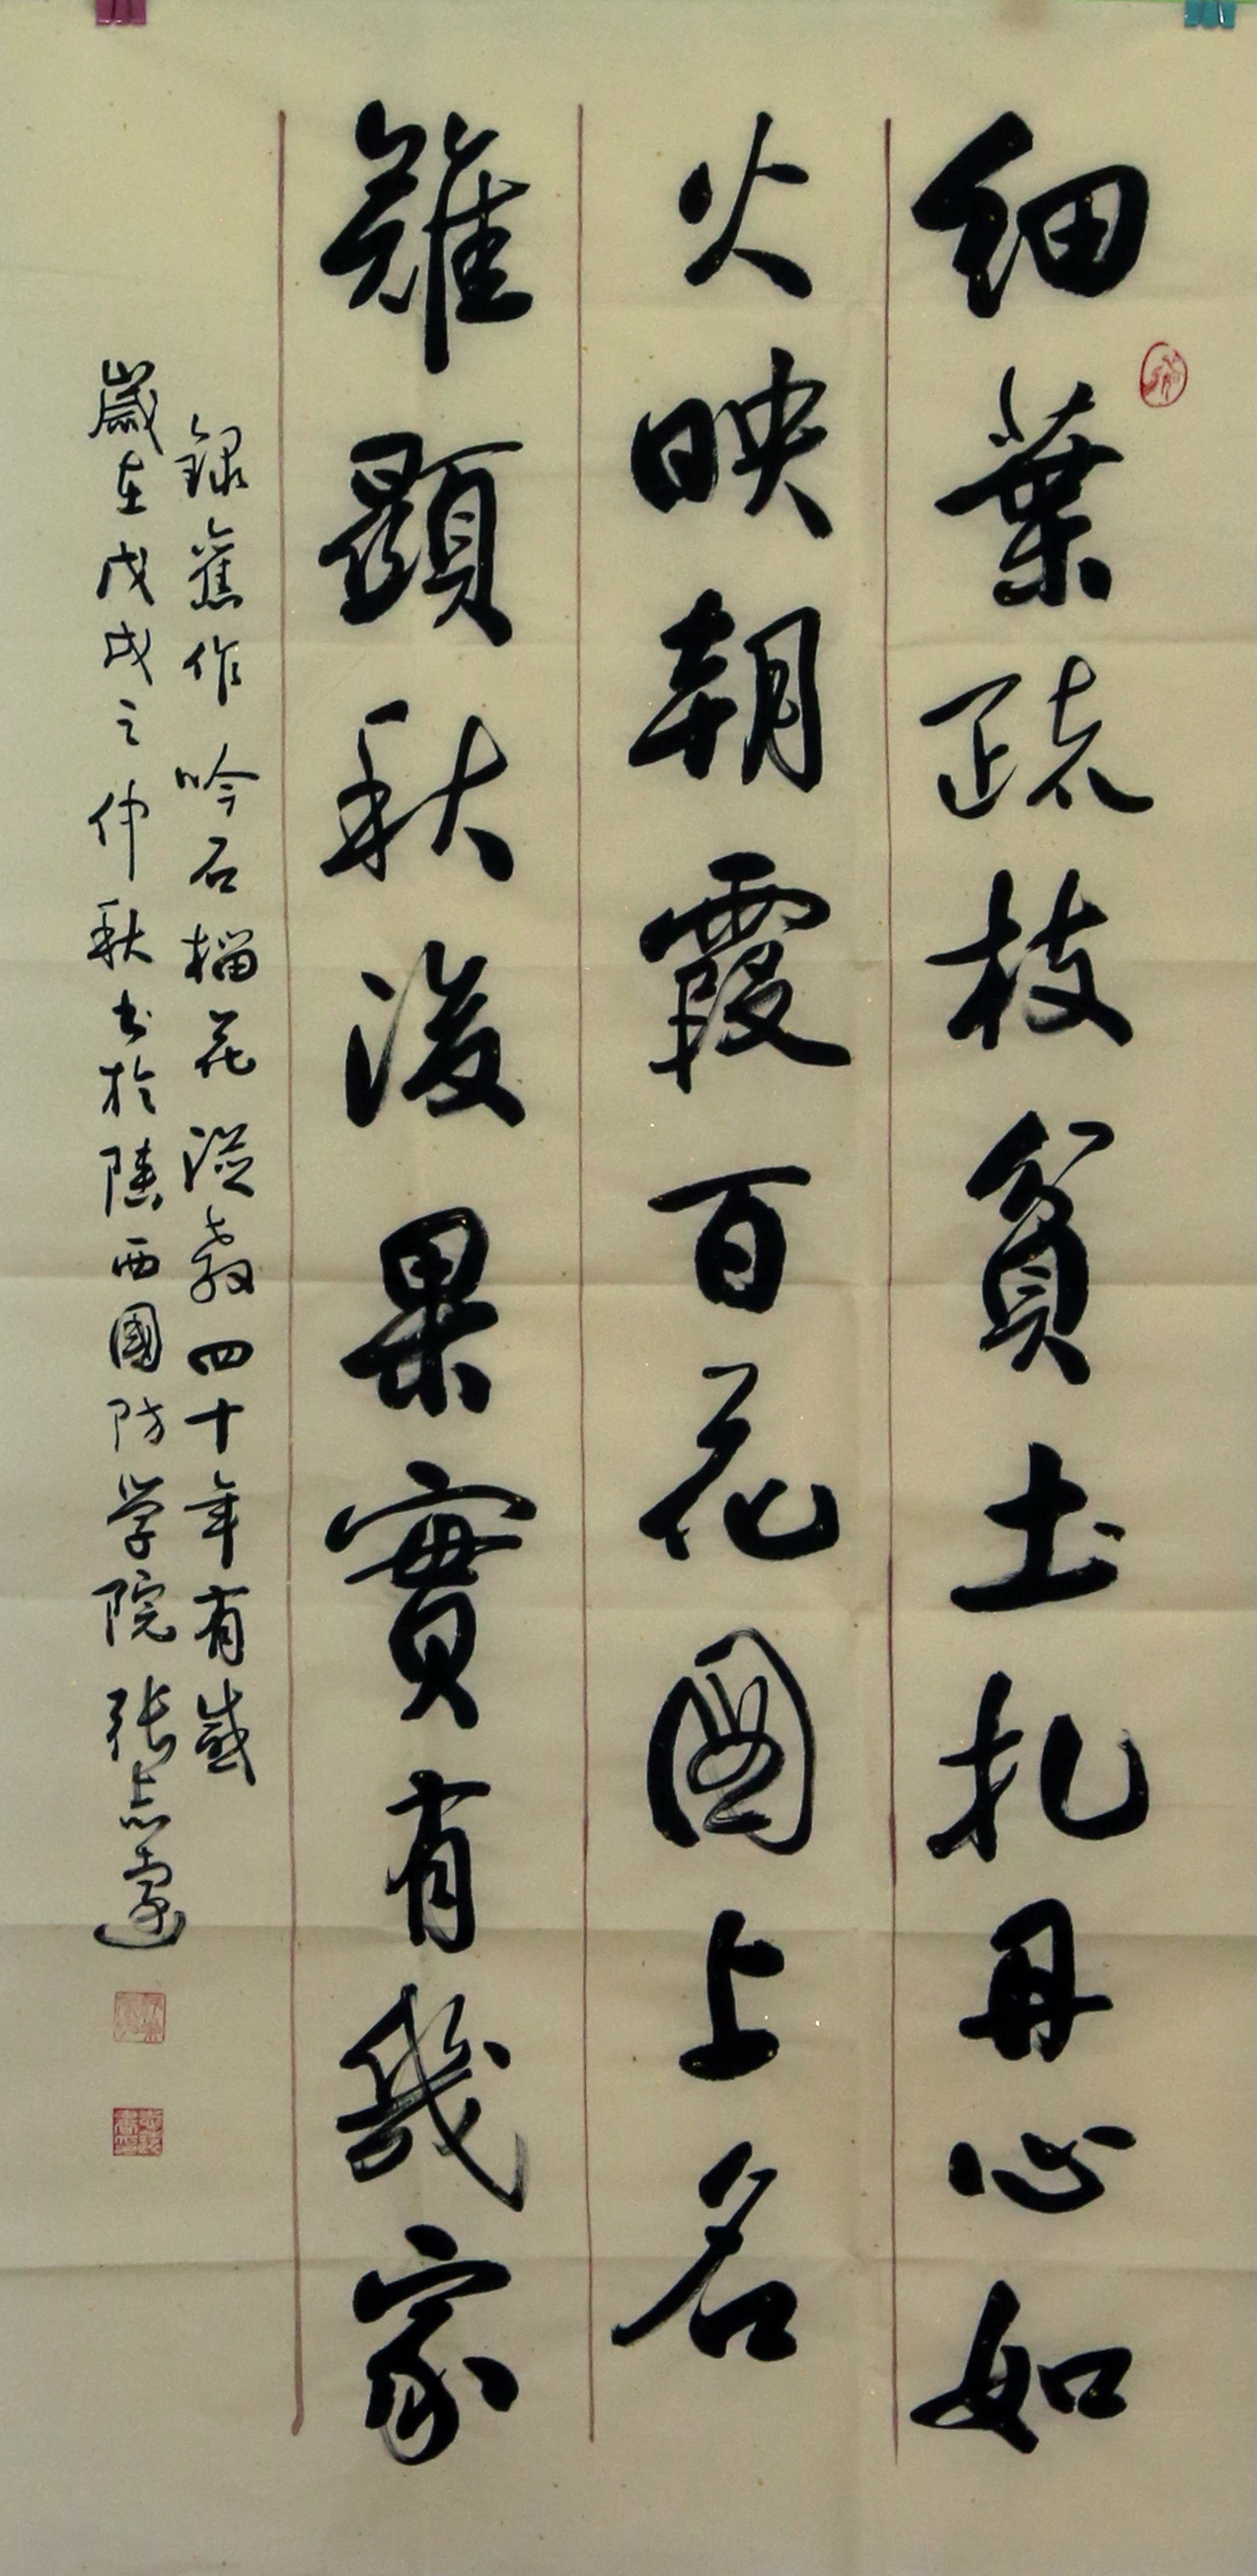 細葉疏枝貧土扎丹心如
火映朝霞百花園上名
難顯秋後果實有幾家
錄舊作吟石榴花從教四十年有感
歲在戊戌之仲秋书於陝西國防学院张志